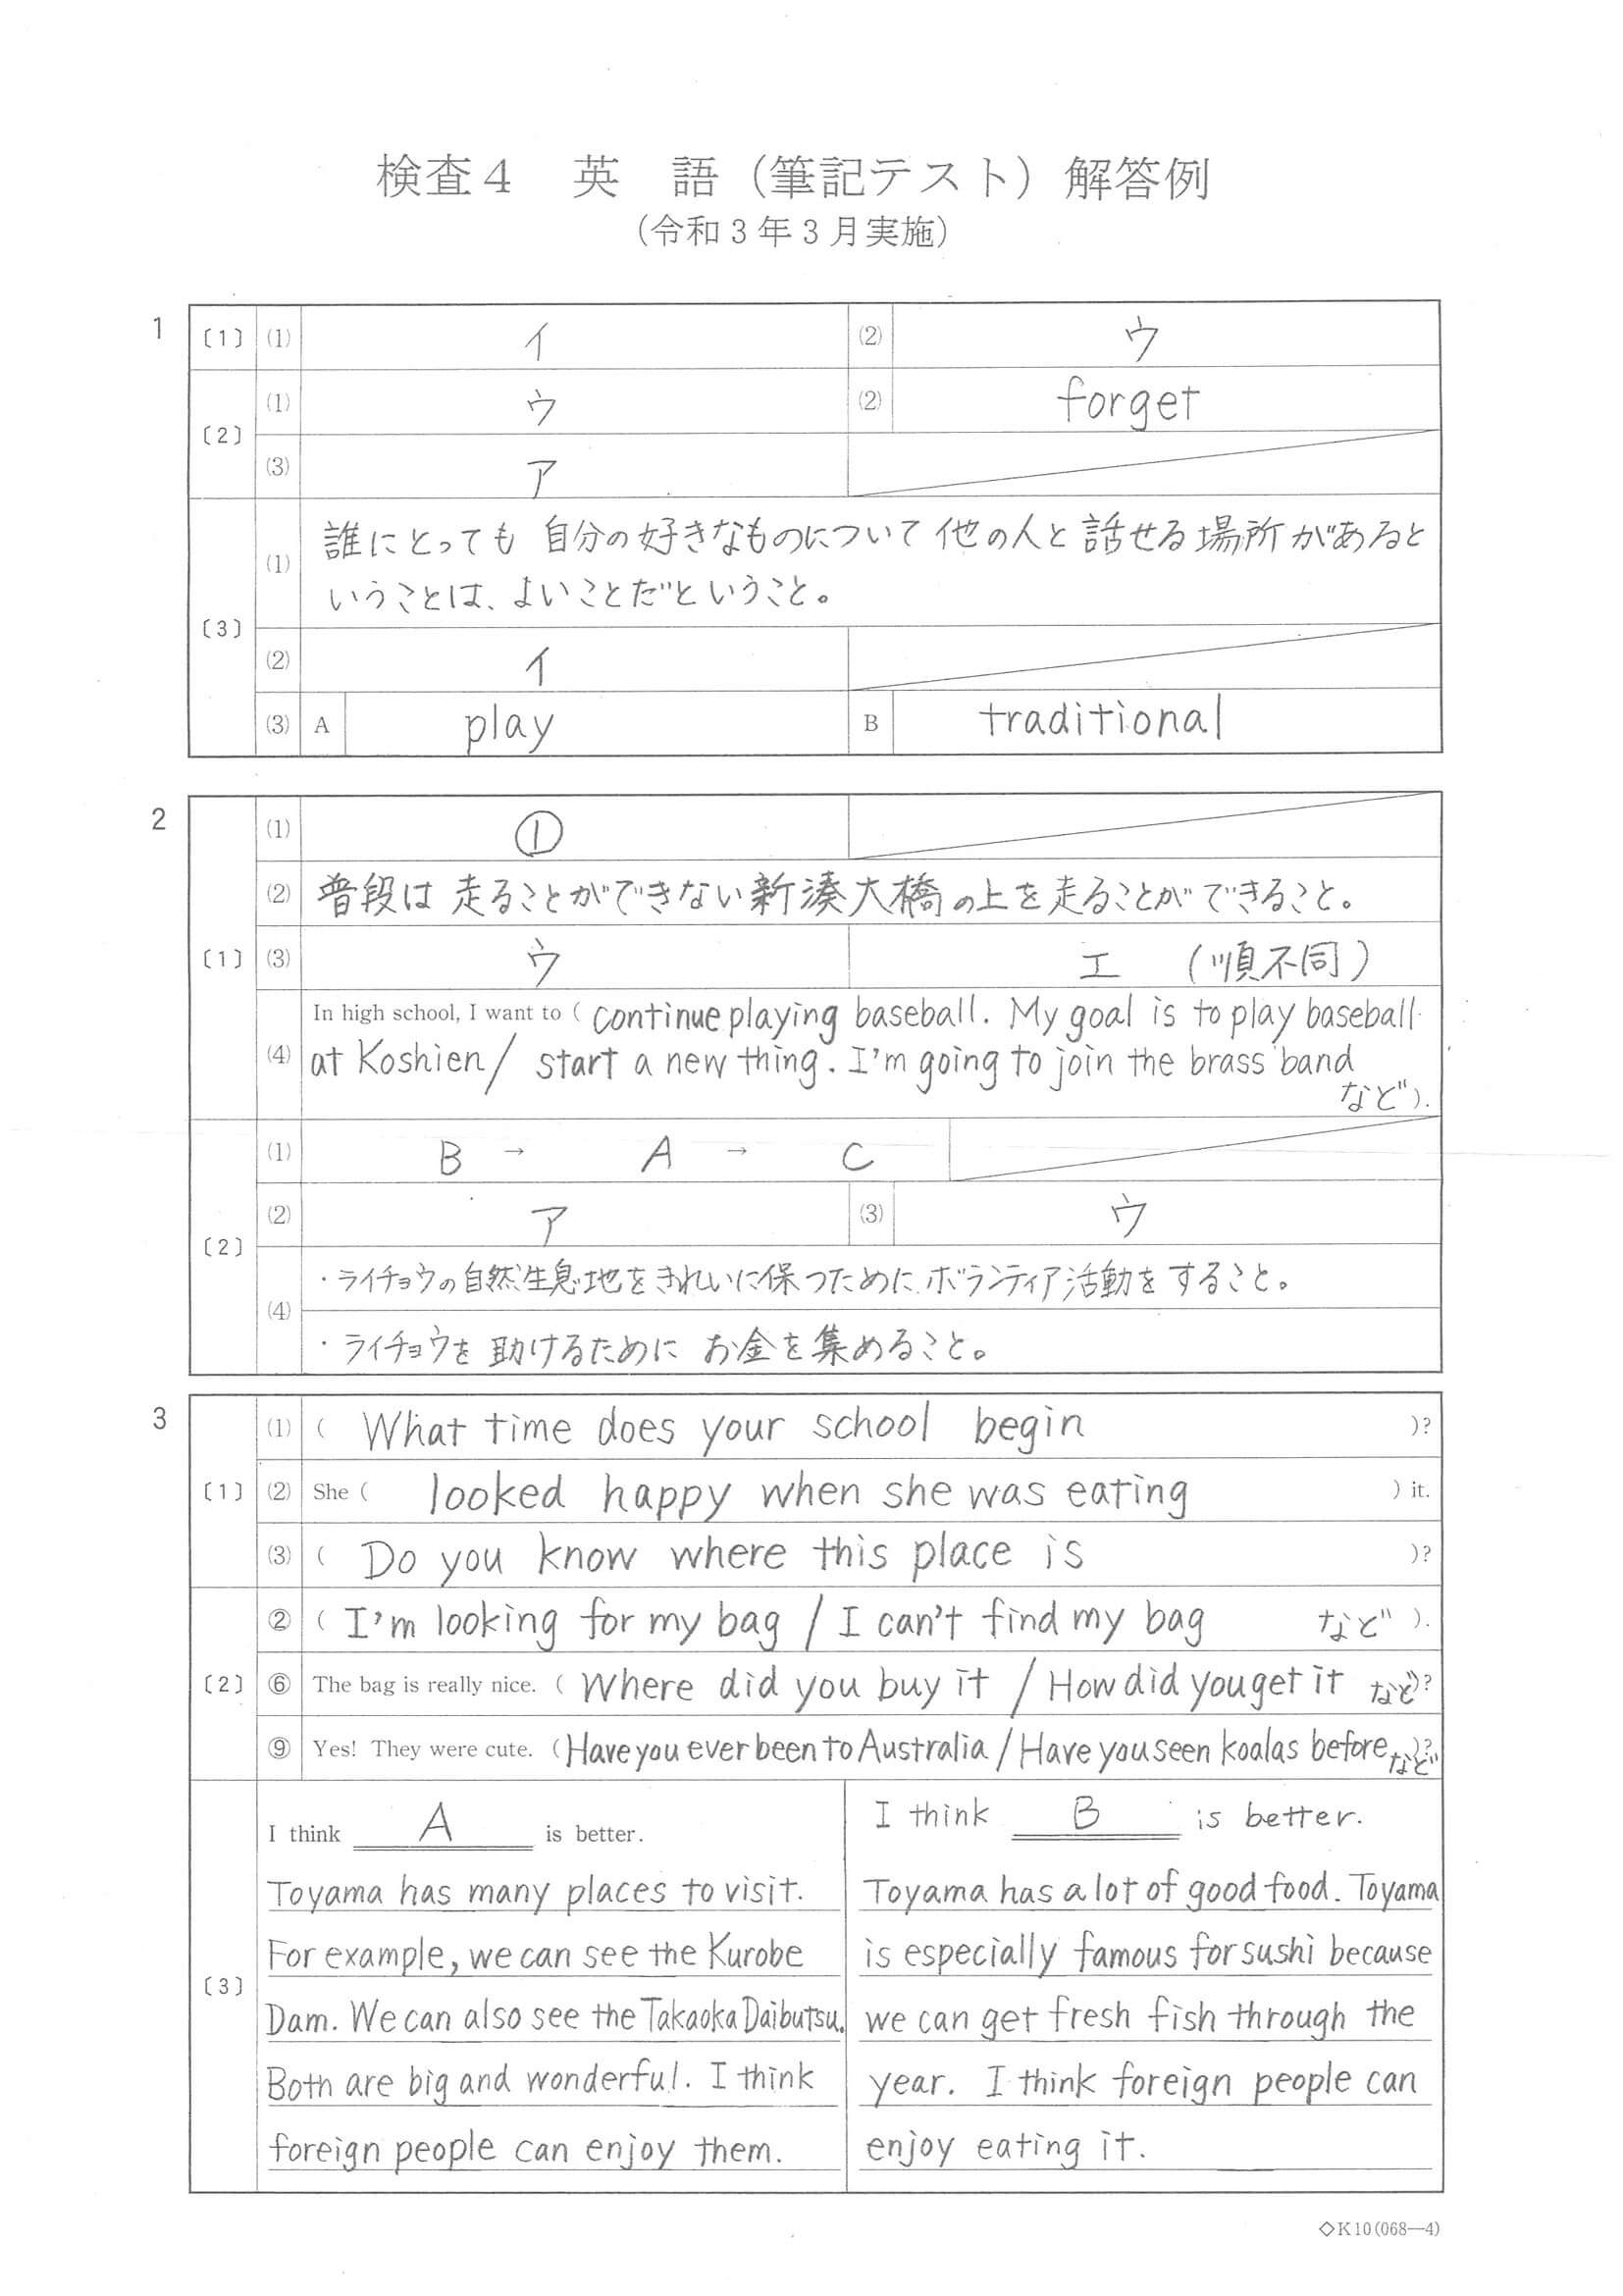 検査4 英 語（筆記テスト）解答例
（令和3年3月実施）
1
〔1〕 (1) イ (2) ウ
〔2〕 (1) ウ (2) forget
(3) ア
〔3〕 (1) 誰にとっても 自分の好きなものについて 他の人と 話せる場所があると
いうことは、よいことだということ。
(2) イ
(3) A play B traditional
2
〔1〕 (1) ①
(2) 普段は 走ることができない新湊大橋の上を走ることができること。
(3) ウ エ （順不同）
(4) In high school, I want to ( continue playing baseball. My goal is to play baseball
at Koshien / start a new thing. I'm going to join the brass band
など ).
〔2〕 (1) B → A → C
(2) ア (3) ウ
(4) ・ライチョウの自然生息地をきれいに保つためにボランティア活動をすること。
・ライチョウを助けるために お金を集めること。
3
〔1〕 (1) ( What time does your school begin )?
(2) She ( looked happy when she was eating ) it.
(3) ( Do you know where this place is )?
〔2〕 ② ( I'm looking for my bag / I can't find my bag など ).
⑥ The bag is really nice. ( Where did you buy it / How did you get it など )?
⑨ Yes! They were cute. ( Have you ever been to Australia / Have you seen koalas before など )?
〔3〕 I think A is better.
Toyama has many places to visit.
For example, we can see the Kurobe
Dam. We can also see the Takaoka Daibutsu.
Both are big and wonderful. I think
foreign people can enjoy them.
I think B is better.
Toyama has a lot of good food. Toyama
is especially famous for sushi because
we can get fresh fish through the
year. I think foreign people can
enjoy eating it.
◇K10(068—4)